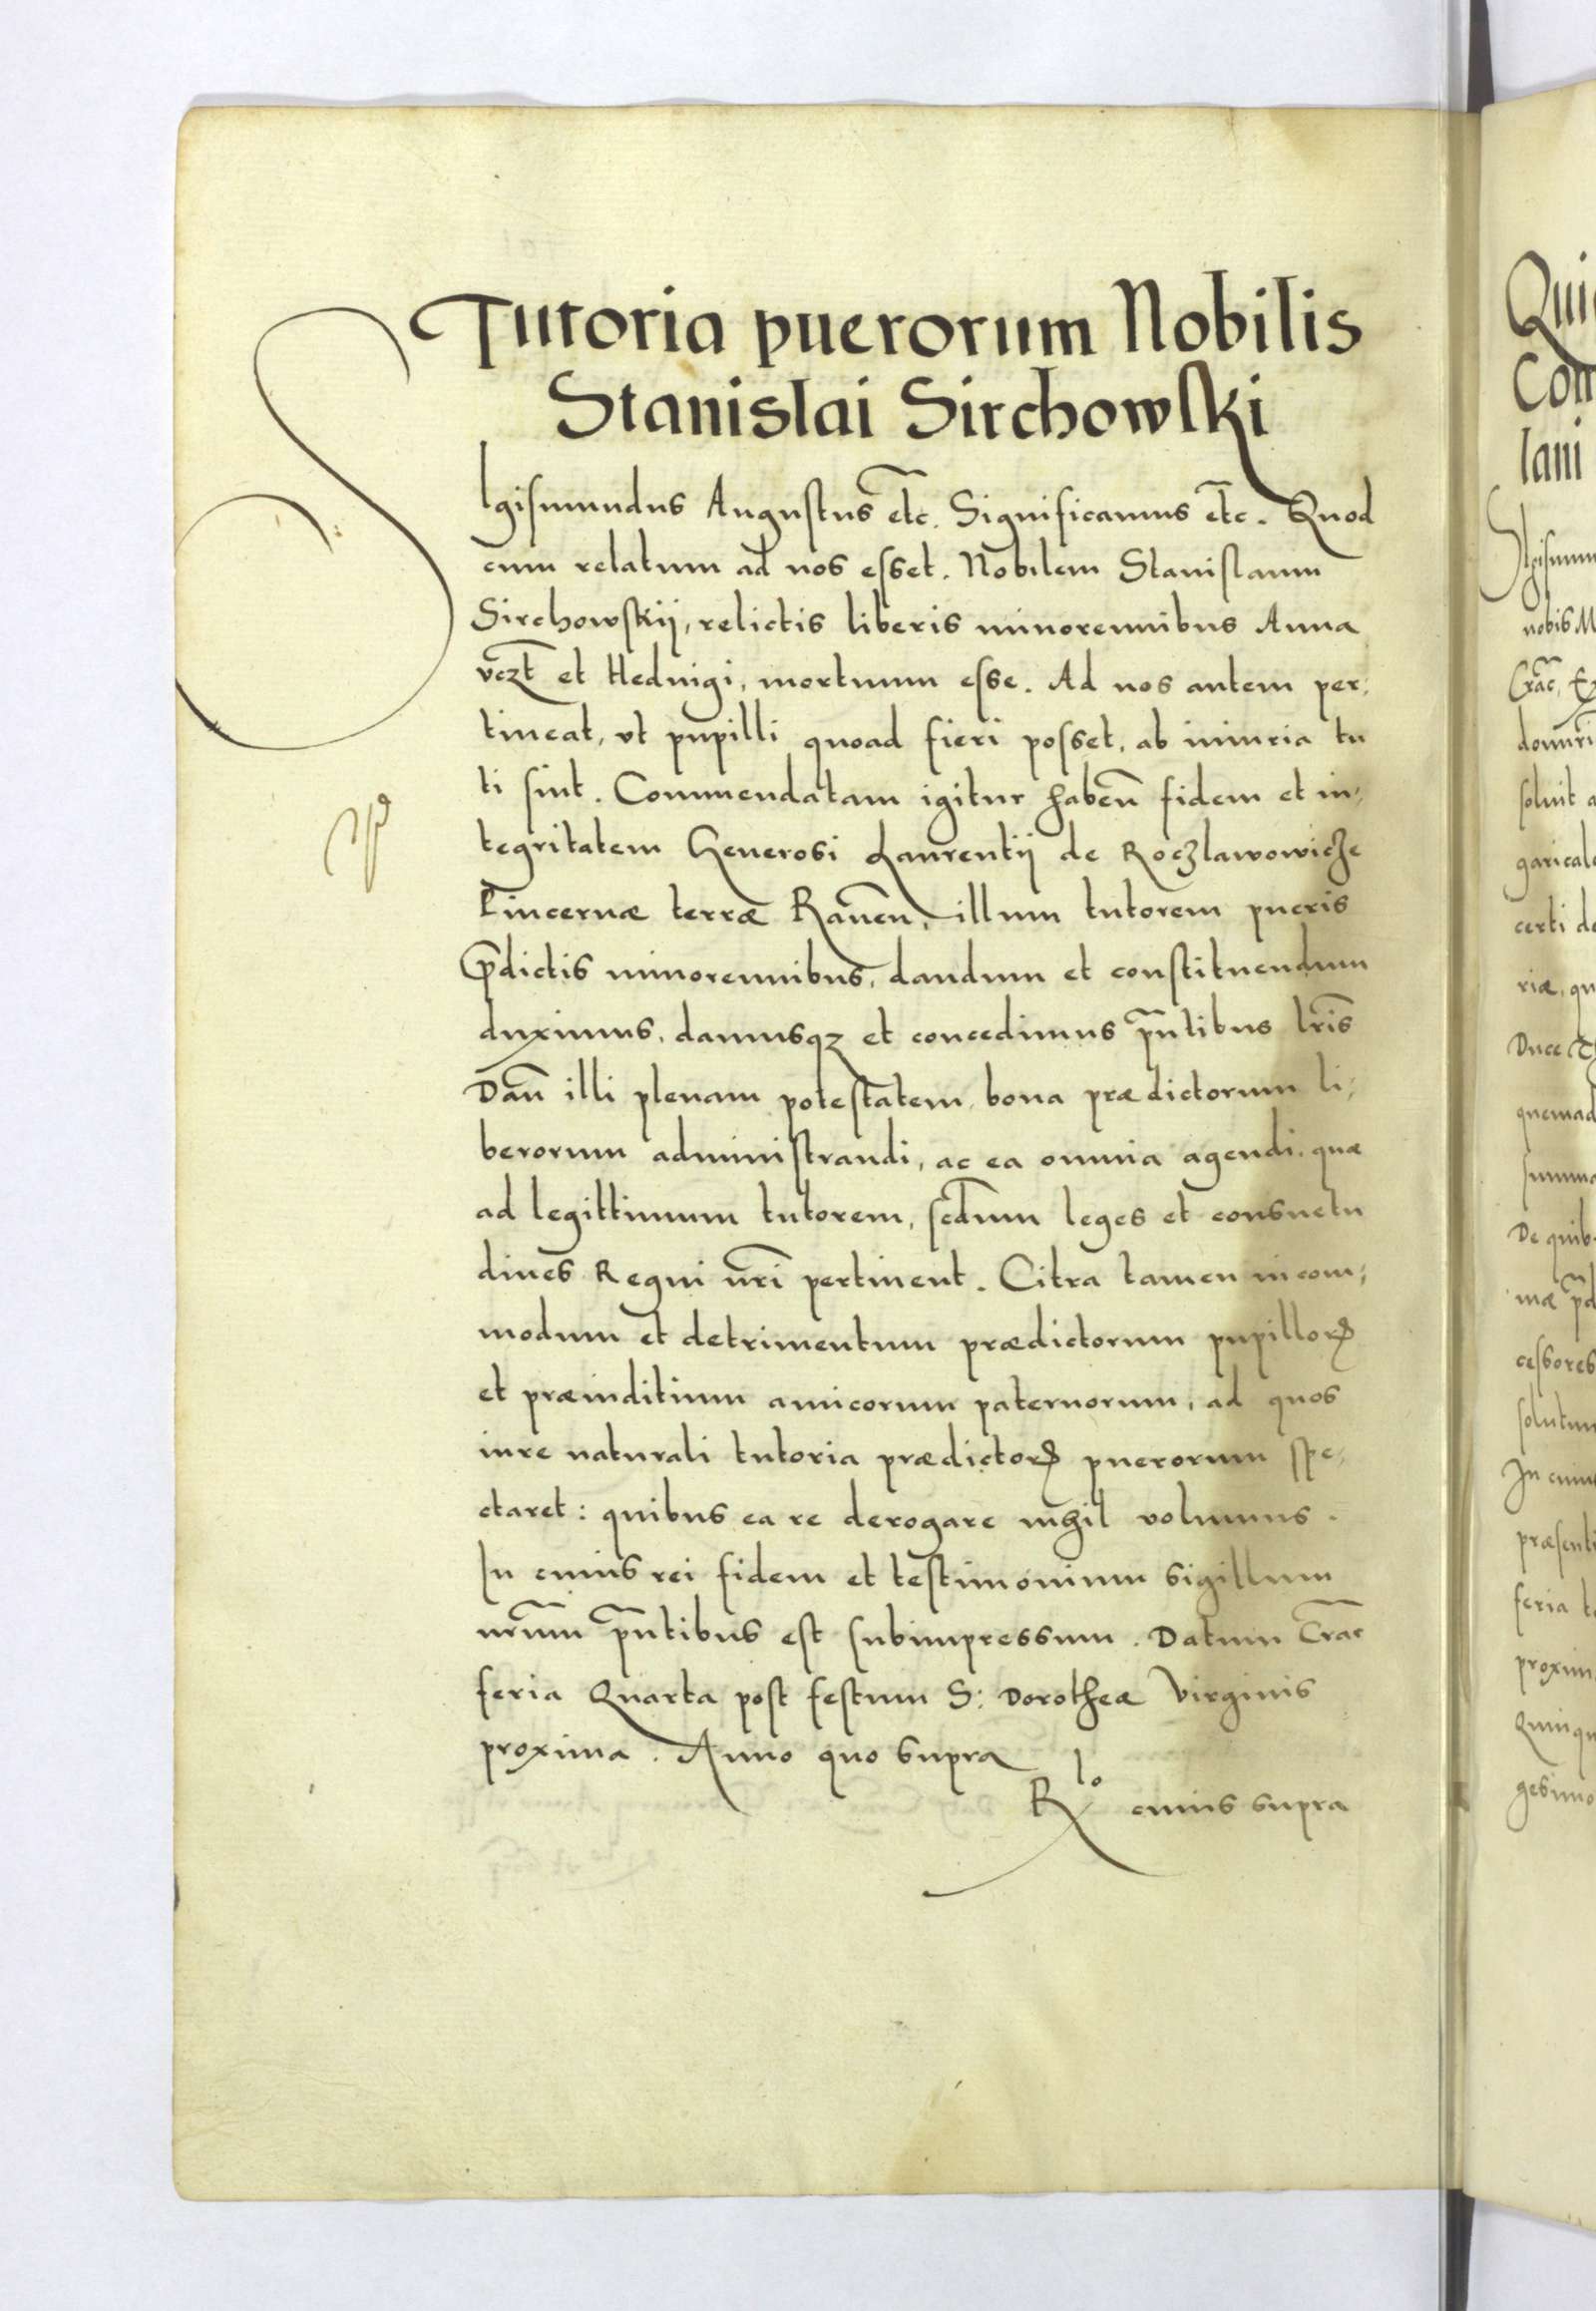 Tutoria puerorum Nobilis
Stanislai Sirchowski
SIgismundus Augustus etc. Significamus etc. Quod
cum relatum ad nos esset. Nobilem Stanislaum
Sirchowskij, relictis liberis minorennibus Anna
vczt et Heduigi, mortuum esse. Ad nos autem per,
tineat, vt pupilli quoad fieri posset, ab iniuria tu
ti sint. Commendatam igitur haben fidem et in,
tegritatem Generosi Laurentij de Roczlawowicze
Pincernæ terræ Rauen, illum tutorem pueris
Pdictis minorennibus, dandum et constituendum
duximus, damusqz et concedimus pntibus lris
Dan illi plenam potestatem, bona prædictorum li,
berorum administrandi, ac ea omnia agendi, quæ
ad legittimum tutorem, scdum leges et consuetu
dines Regni nri pertinent. Citra tamen incom,
modum et detrimentum prædictorum pupilloꝝ
et præiuditium amicorum paternorum, ad quos
iure naturali tutoria prædictoꝝ puerorum spe,
ctaret: quibus ea re derogare nihil volumus.
In cuius rei fidem et testimonium sigillum
nrum pntibus est subimpressum. Datum Crac
feria Quarta post festum S: Dorotheæ Virginis
proxima. Anno quo supra
Rlo cuius supra
Qui
Com
lani
nobis M
Crac, Ex
soluit a
certi de
riæ, qu
Duce
quemad
summa
De quib
mæ pd
cessores
solutum
In cuius
præsenti
feria
proxim
Quinqu
gesimo